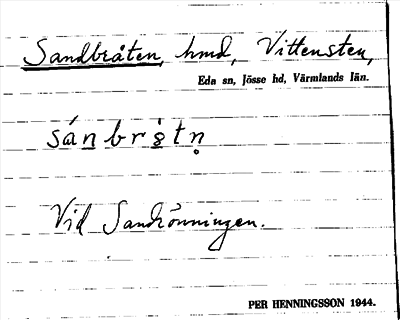 Sandbråten, hmd, Vittensten,
Eda sn, Jösse hd, Värmlands län.
sánbrs̀tn̥
Vid Sandrönningen.
PER HENNINGSSON 1944.